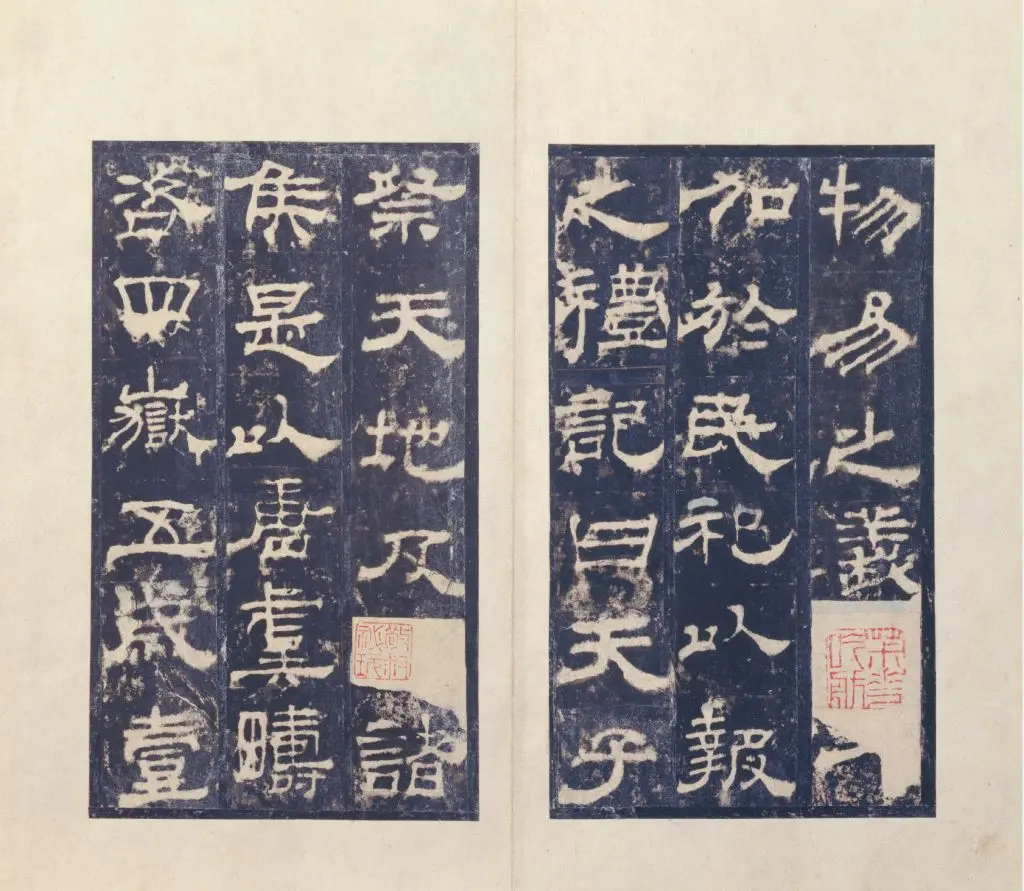 物易之義
加於民祀以報
之禮記曰天子
祭天地及諸
侯是以唐虞疇
咨四嶽五歲壹